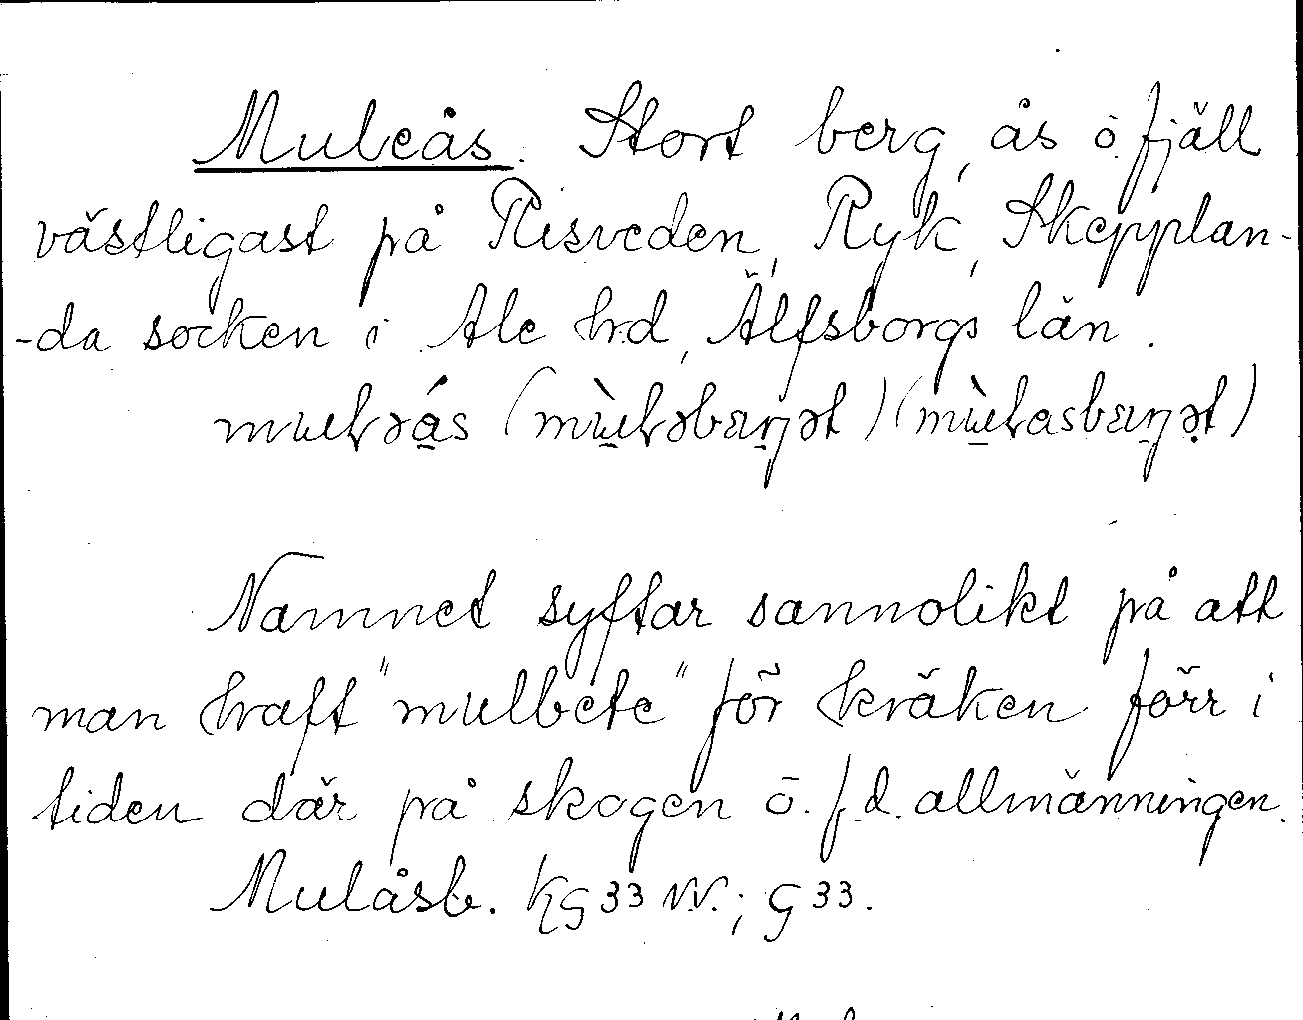 Muleås. Stort berg, ås o. fjäll
västligast på Risveden, Ryk, Skepplan-
-da socken i Ale hrd, Älfsborgs län.
Namnet syftar sannolikt på att
man haft "mulbete" för kräken förr i
tiden där på skogen o. f.d. allmänningen.
Mulåsb. KG 33 N.; G 33.